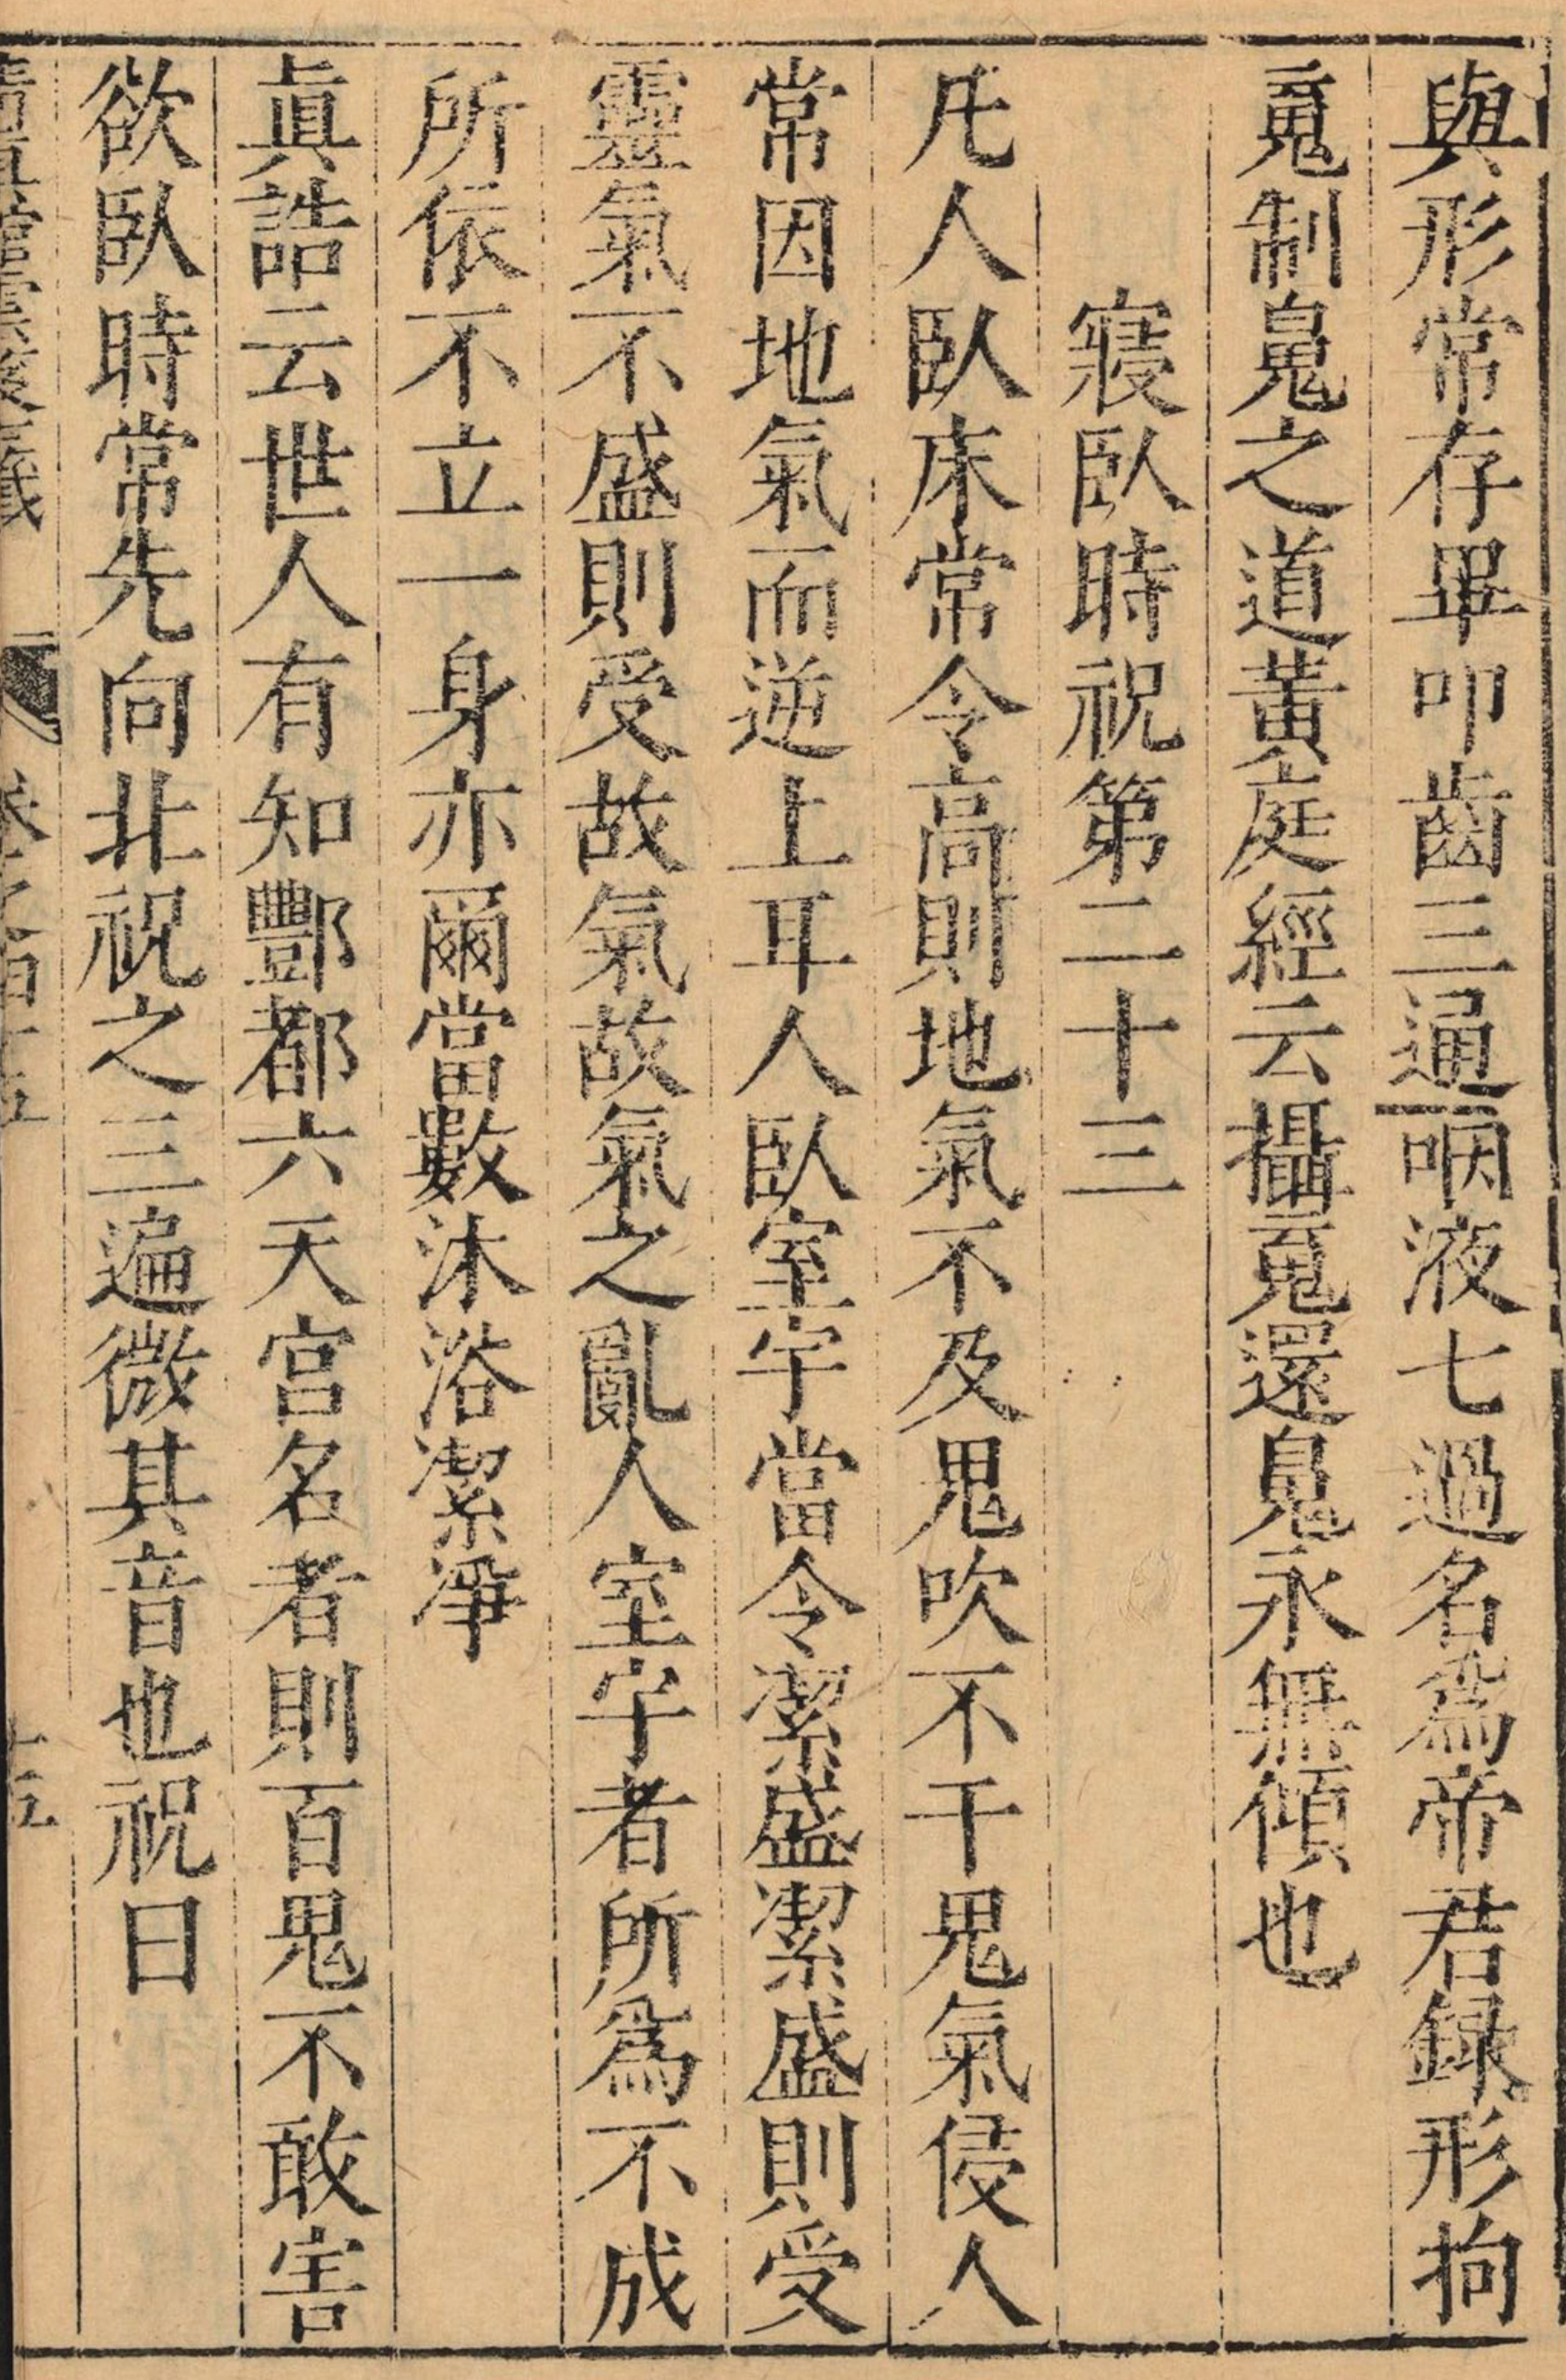 與形常存畢叩齒三通咽液七過名爲帝君錄形拘
䰟制鬽之道黃庭經云攝䰟還鬽永無傾也
寢臥時祝第二十三
凡人臥床常令高則地氣不及鬼吹不干鬼氣侵人
常因地氣而逆上耳人臥室宇當令潔盛潔盛則受
靈氣不盛則受故氣故氣之亂人室宇者所爲不成
所依不立一身亦爾當數沐浴潔淨
眞誥云世人有知酆都六天宮名者則百鬼不敢害
欲臥時常先向北祝之三遍微其音也祝曰